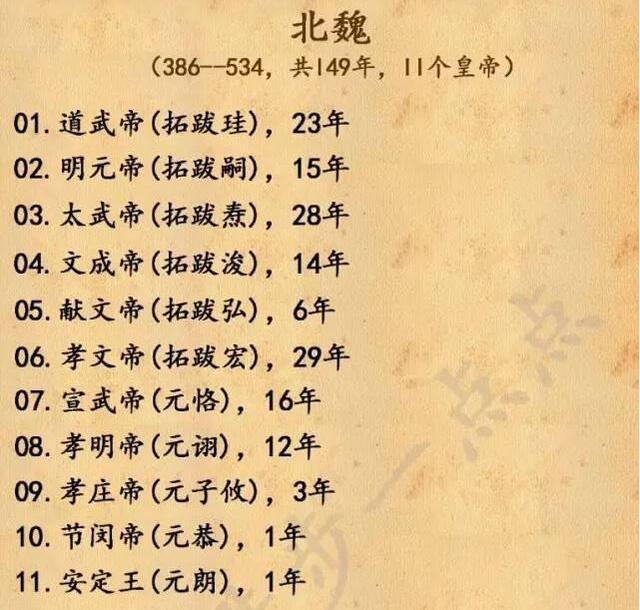 北魏
（386--534，共149年，11个皇帝）
01.道武帝(拓跋珪)，23年
02.明元帝(拓跋嗣)，15年
03.太武帝(拓跋焘)，28年
04.文成帝(拓跋浚)，14年
05.献文帝(拓跋弘)，6年
06.孝文帝(拓跋宏)，29年
07.宣武帝(元恪)，16年
08.孝明帝(元诩)，12年
09.孝庄帝(元子攸)，3年
10.节闵帝(元恭)，1年
11.安定王(元朗)，1年
步一点点